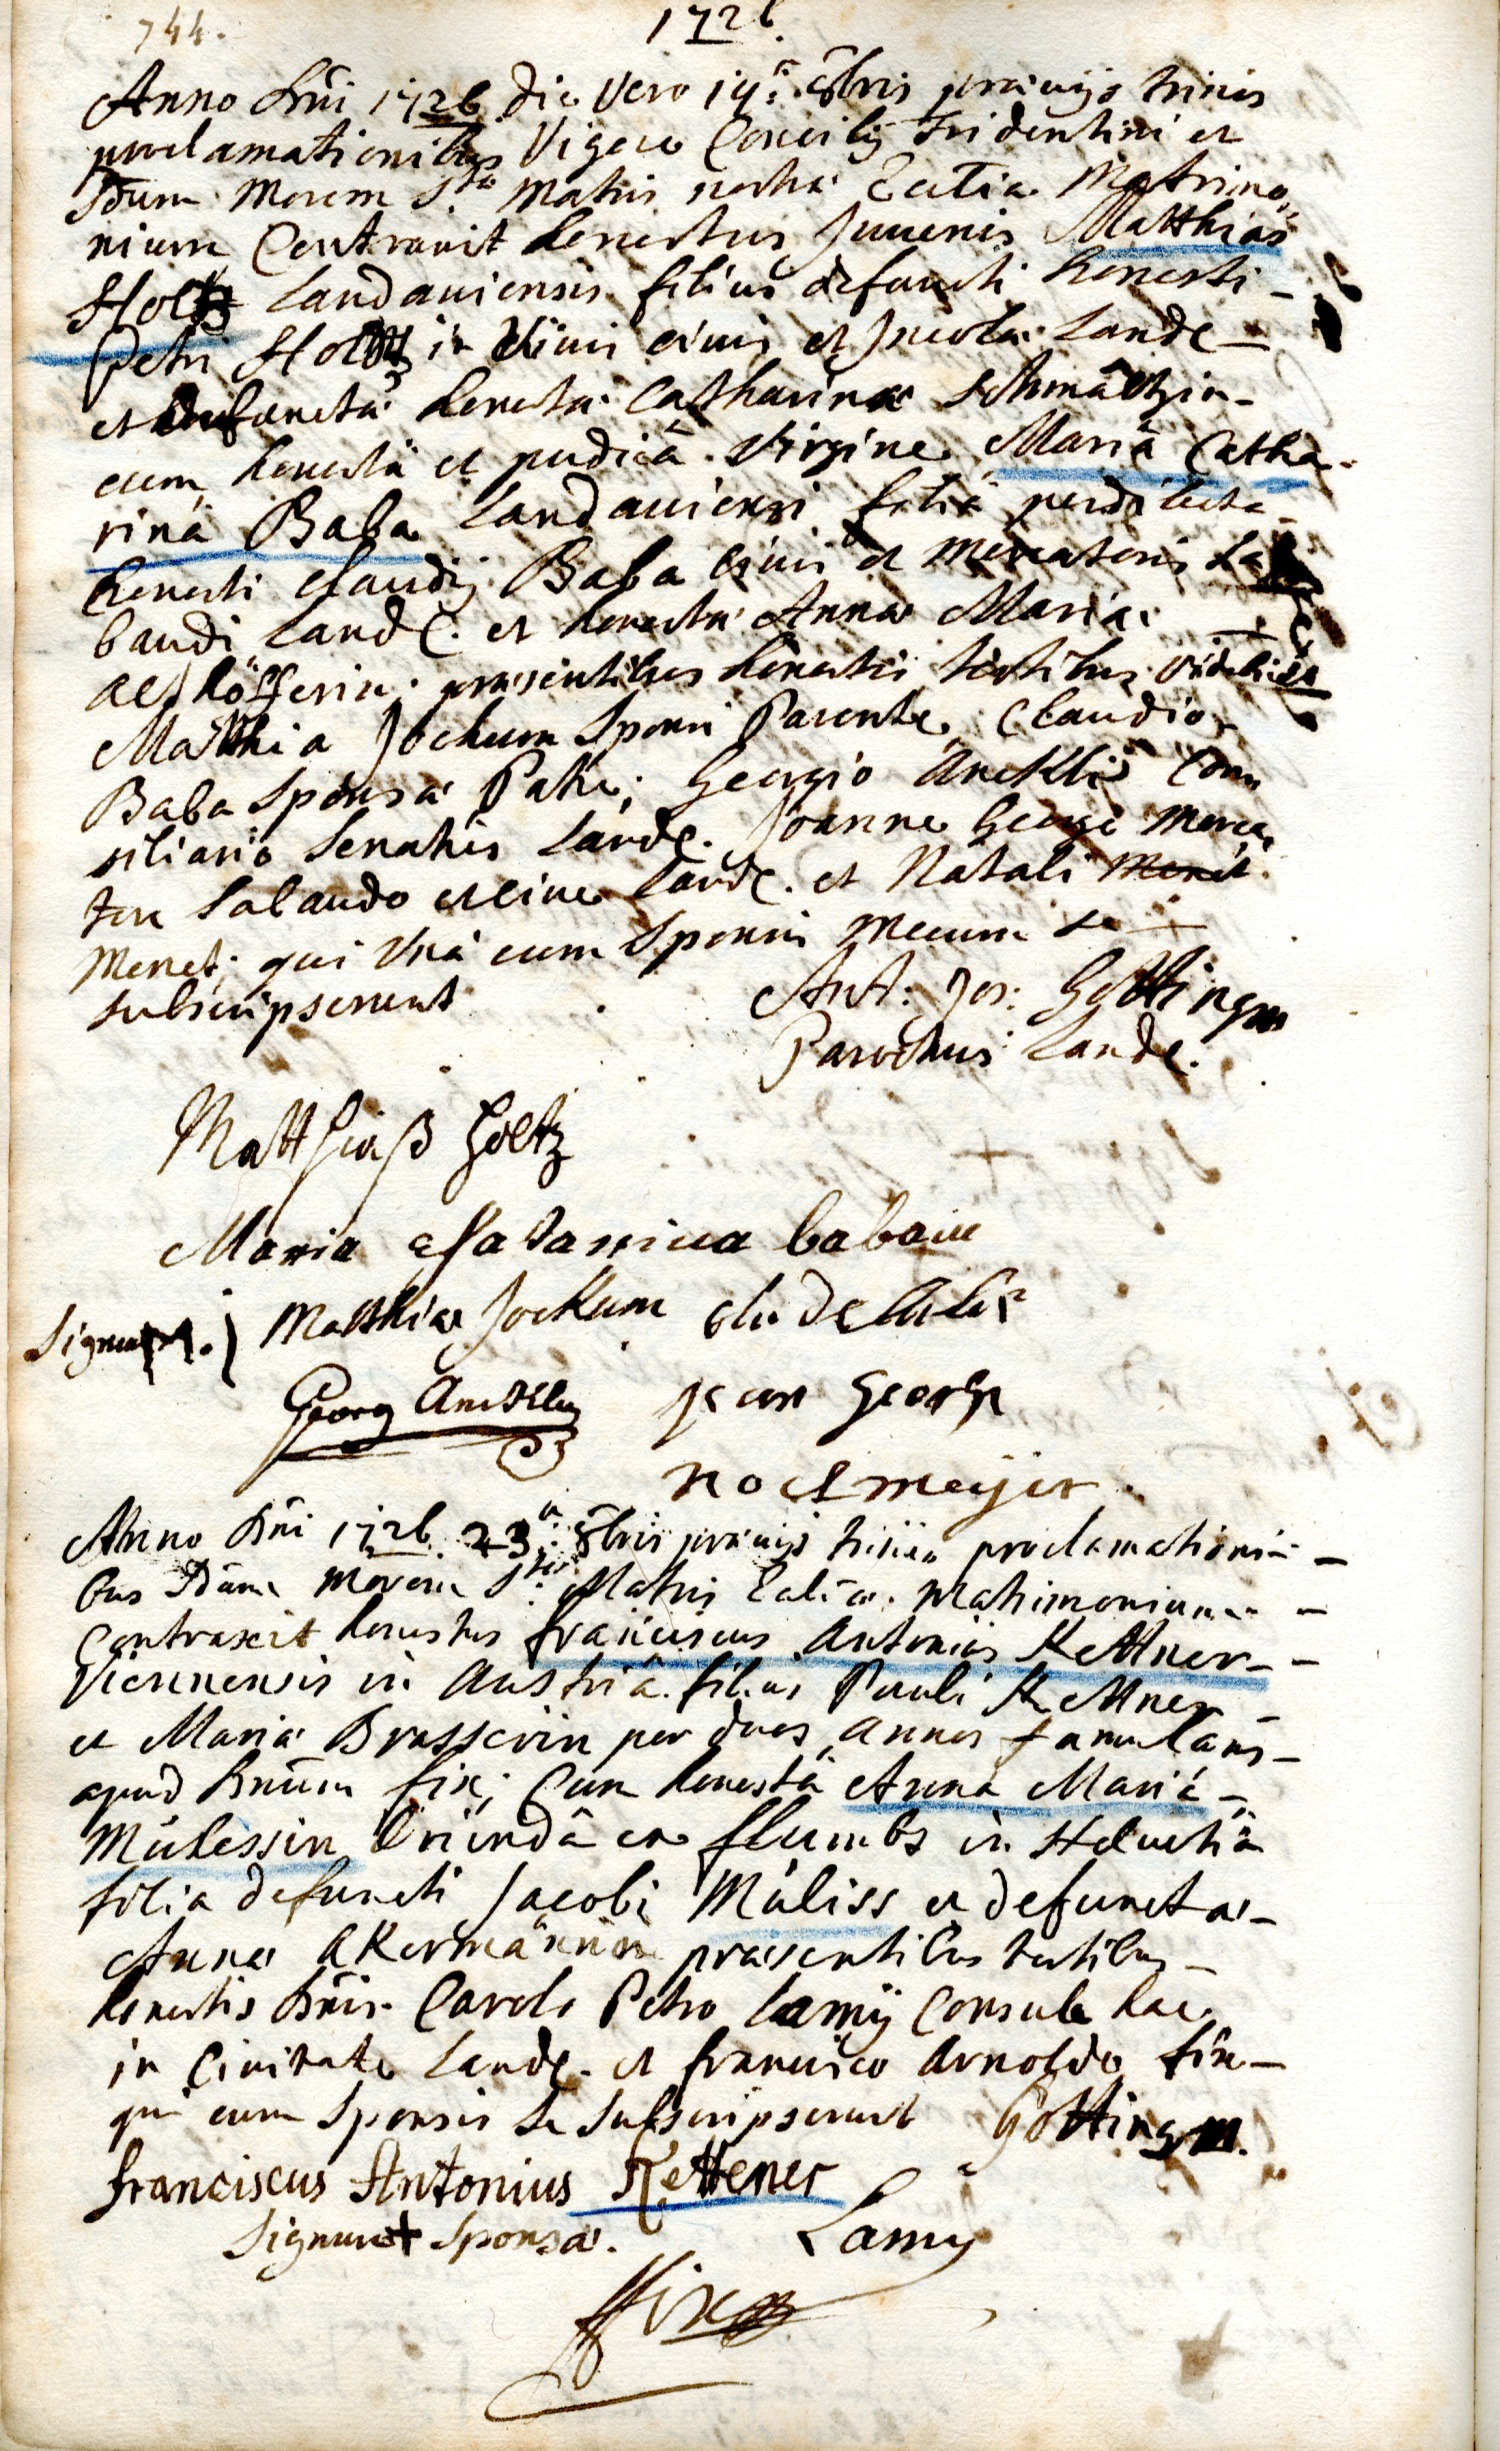 744.
1726.
Anno Dñi 1726 die Vero 14ª 8bris prævijs trinis
proclamationibus Vigore Concilij Tridentini et
sdum Morem Stæ Matris nostræ Eccliæ Matrimo„
nium Contraxit honestus Juvenis Matthias
Holtz Landaviensis filius defuncti honesti –
Petri Holtz in civis et Incolæ Land. –
et defunctæ honestæ Catharinæ Schmältzin –
cum honestâ et pudicâ Virgine Mariâ Catha-
rinâ Baba Landaviensi filiâ
honesti Claudij Baba civis et Mercatoris Sa
baudi Land. et honestæ Annæ Mariæ
præsentibus honestis testibus videlicet
Matthia Jochum Sponsi Parente, Claudio
Baba Sponsæ Patre, Georgio Anckli Con
siliario Senatûs Land. Joanne George Merca„
tore Sabaudo et cive Land. et Natali
qui Unâ cum Sponsis Mecum se –
subscripserunt
Ant: Jos: Götting
Parochus Land.
Matthiaß Holtz
Maria Chatarina babain
Signum Matthiæ Jochum
Georg Anckly Jean George
noel meyer
Anno Dñi 1726 23ª 8bris prævijs trinis proclamationi –
bus sdum Morem Stæ Matris Eccliæ Matrimonium –
Contraxit honestus franciscus Antonius Kettner –
Viennensis in Austriâ filius Pauli Kettner
et Mariæ Brasserin per duos annos famulans –
apud Dnum fix; Cum honestâ Annâ Mariâ –
Mülessin Oriundâ ex flumbs in Helvetiâ
filia defuncti Jacobi Müliss et defunctæ –
Annæ Akermännin præsentibus testibus –
honestis Dñis Carolo Petro Lamÿ Consule hac
in Civitate Land. et francisco Arnoldo fix –
qui cum Sponsis se Subscripserunt Götting
franciscus Antonius Kettener
Signum + Sponsæ. Lamy
ffix